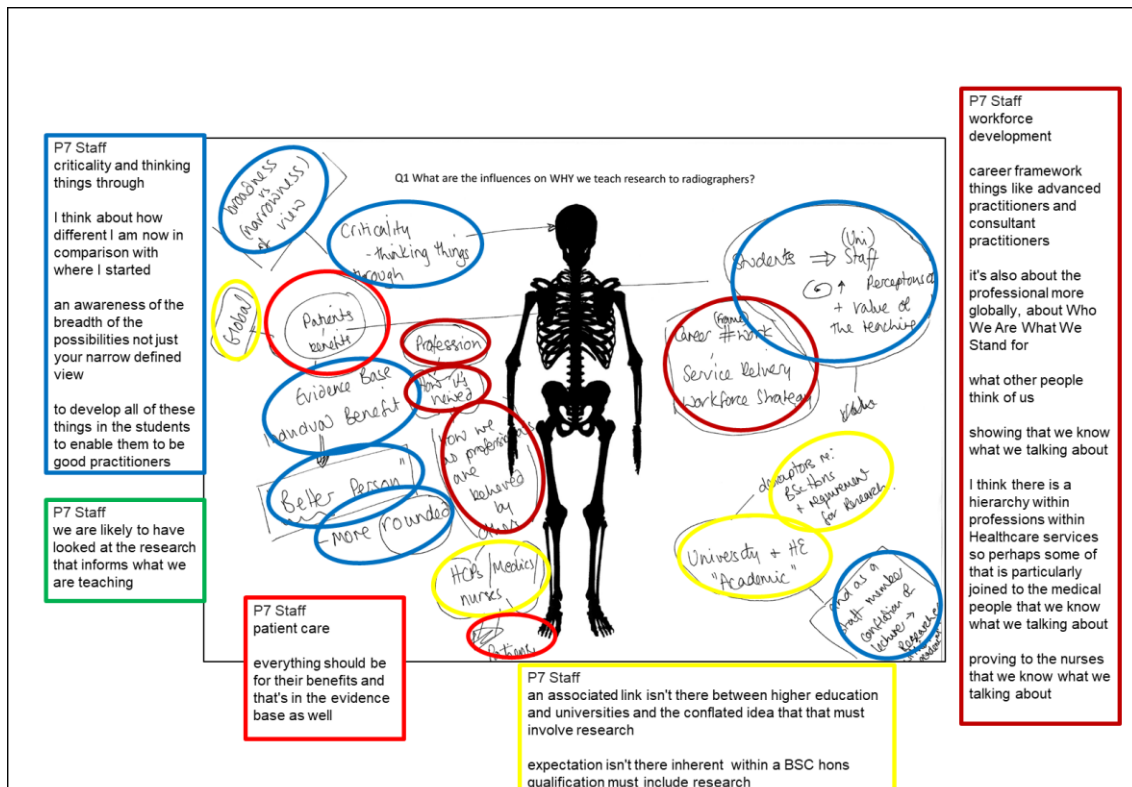 P7 Staff
criticality and thinking
things through
I think about how
different I am now in
comparison with
where I started
an awareness of the
breadth of the
possibilities not just
your narrow defined
view
to develop all of these
things in the students
to enable them to be
good practitioners
P7 Staff
we are likely to have
looked at the research
that informs what we
are teaching
P7 Staff
patient care
everything should be
for their benefits and
that's in the evidence
base as well
Q1 What are the influences on WHY we teach research to radiographers?
broadness
vs
(narrowness)
of view
Criticality
- thinking things
through
Global
Patients
benefits
Profession
How it's
viewed
Evidence Base
Individual Benefit
"Better Person"
- More rounded
How we
as professionals
are
believed
by
others
HCPs/Medics/
nurses
Patients
(Uni)
Students ⇒ Staff
↑ Perceptions of
+ value of
the teaching
(Frame)
Career # work
Service Delivery
Workforce Strategy
descriptors re:
BSc Hons
+ requirement
for research.
University + HE
"Academic"
and as a
staff member
conflation of
lecturer →
P7 Staff
an associated link isn't there between higher education
and universities and the conflated idea that that must
involve research
expectation isn't there inherent within a BSC hons
qualification must include research
P7 Staff
workforce
development
career framework
things like advanced
practitioners and
consultant
practitioners
it's also about the
professional more
globally, about Who
We Are What We
Stand for
what other people
think of us
showing that we know
what we talking about
I think there is a
hierarchy within
professions within
Healthcare services
so perhaps some of
that is particularly
joined to the medical
people that we know
what we talking about
proving to the nurses
that we know what we
talking about